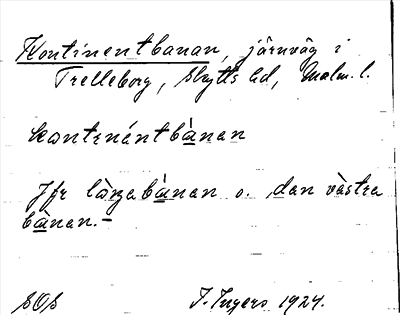 Kontinentbanan, järnväg i
Trelleborg, Skytts hd, Malm. l.
kontenéntbànan
Jfr làngabànan o. dan västra
bànan.-
SOS I. Ingers 1924.